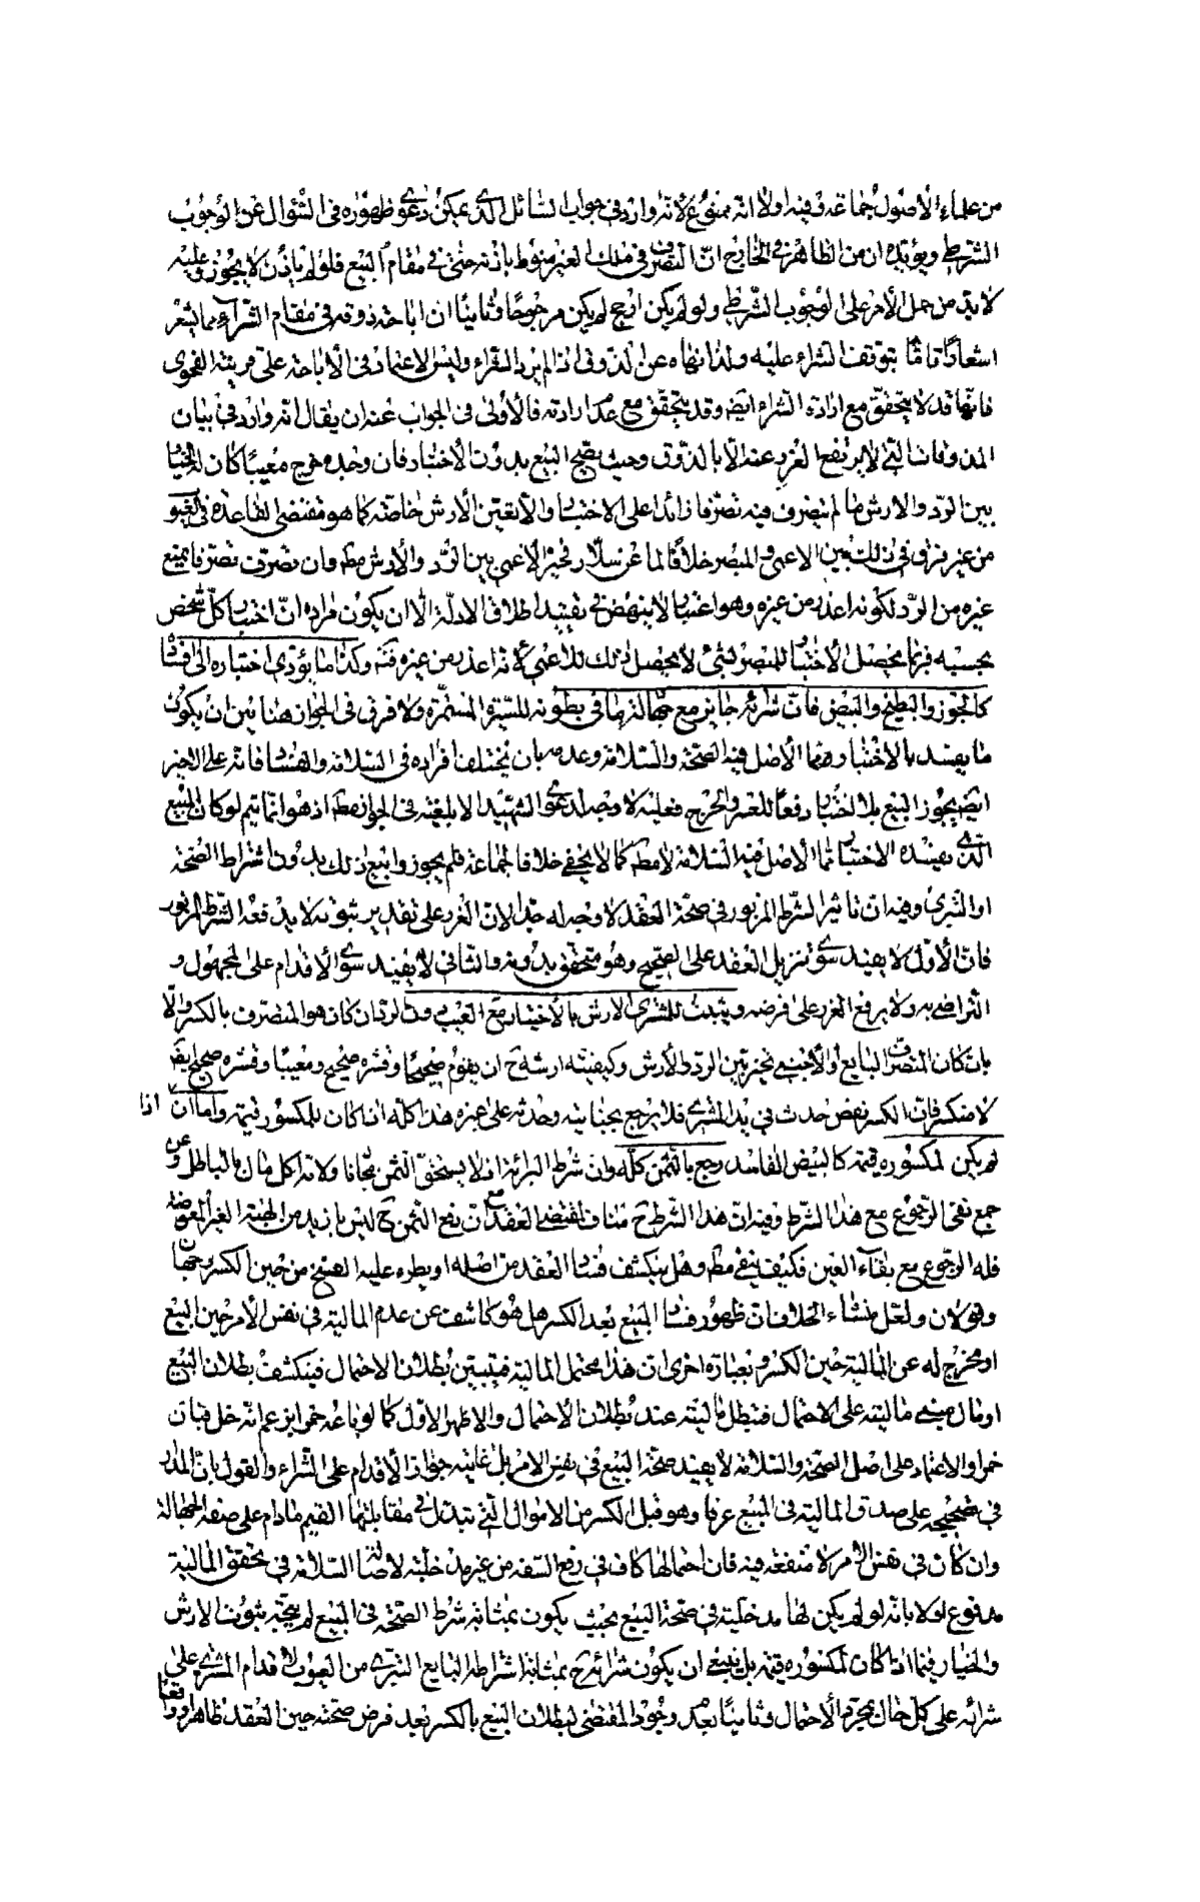 من علماء الأصول جماعة وفيه اولا انه ممنوع لأنه وارد في جواب السائل الذي يمكن دعوى ظهوره في السؤال عن الوجوب
الشرطي ويؤيده ان من الظاهر في الخارج انّ التصرف في ملك الغير منوط باذنه حتى في مقام البيع فلو لم يأذن لا يجوز وعليه
لا بد من حمل الأمر على الوجوب الشرطي ولو لم يكن ارجح لم يكن مرجوحًا وثانيًا ان اباحة ذوقه في مقام الشراء مما يشعر
اشعارًا تامًّا بتوقف الشراء عليه ولذا نهاه عن الذوق اذا لم يرد الشراء وليس الاعتماد في الأباحة على قرينة الفحوى
فانها قد لا يتحقق مع ارادة الشراء ايضا وقد يتحقق مع عدم ارادته فالأولى في الجواب عنه ان يقال انه وارد في بيان
المذوقات التي لا يرتفع الغرر عنه الا بالذوق وحيث يصح البيع بدون الأختبار فان وجده خرج معيبًا كان له الخيار
بين الرد والارش ما لم يتصرف فيه تصرفا زائدا على الاختبار والا تعين الأرش خاصة كما هو مقتضى القاعدة في العيوب
من غير فرق في ذلك بين الاعمى والمبصر خلافًا لما عن سلّار فخير الأعمى بين الرد والأرش مط وان تصرف تصرفا يمنع
غيره من الرد لكونه اعذر من غيره وهو اعتبار لا ينهض في تقييد اطلاق الادلة الّا ان يكون مراده انّ اختبار كلّ شخص
بحسبه فربما يحصل الأختبار للمبصر بشيء لا يحصل ذلك للاعمى لأنه اعذر من غيره فتم وكذا ما يؤدي اختباره الى افساده
كالجوز والبطيخ والبيض فانّ شرائه جايز مع جهالة ما في بطونه للسيرة المستمرة ولا فرق في الجواز هنا بين ان يكون
ما يفسد بالأختبار مما الأصل فيه الصحة والسلامة وعدمه بان يختلف افراده في السلامة والفساد فانه على الاخير
ايضا يجوز البيع بلا اختبار دفعًا للعسر والحرج فعليه لا وجه لدعوى الشهيد الا بلغية في الجواز مط اذ هو انما يتم لو كان المبيع
الذي يفسده الاختبار مما الأصل فيه السلامة لا مط كما لا يخفى خلافا لجماعة فلم يجوزوا بيع ذلك بدون اشتراط الصحة
او التبري وفيه ان تاثير الشرط المزبور في صحة العقد لا وجه له جدا لان الغرر على تقدير ثبوته لا يدفعه الشرط المزبور
فانّ الأوّل لا يفيد سوى تنزيل العقد على الصحيح وهو متحقق بدونه والثاني لا يفيد سوى الأقدام على المجهول و
التراضي به ولا يرفع الغرر على فرضه ويثبت للمشتري الأرش بالأختبار مع العيب دون الرد ان كان هو المتصرف بالكسر والّا
بان كان المتصرف البايع أو الأجنبي تخير بين الرد والأرش وكيفيته ارشه ح ان يقوم صحيحًا وقشره صحيح ومعيبًا وقشره صحيح ايضا
لا منكسر فان الكسر نقص حدث في يد المشتري فلا يرجع بجنايته وحدثه على غيره هذا كلّه ان كان للمكسور قيمة واما ان اذا
لم يكن لمكسوره قيمة كالبيض الفاسد رجع بالثمن كلّه وان شرط البرائة اذ لا يستحق الثمن مجانا ولانه اكل مال بالباطل وعن
جمع نفى الرجوع مع هذا الشرط وفيه انّ هذا الشرط ح مناف لمقتضى العقد مع ان دفع الثمن ح ليس بازيد من الهبة الغير المعوضة
فله الرجوع مع بقاء العين فكيف ينفى مط وهل ينكشف فساد العقد من اصله او يطرء عليه الفسخ من حين الكسر وجهان
وقولان ولعل منشاء الخلاف ان ظهور فساد المبيع بعد الكسر هل هو كاشف عن عدم المالية في نفس الأمر حين البيع
او مخرج له عن المالية حين الكسر وبعبارة اخرى ان هذا محتمل المالية فيتبين بطلان الاحتمال فينكشف بطلان البيع
او مال مبني ماليته على الاحتمال فتبطل ماليته عند بطلان الأحتمال والاظهر الاول كما لو باعه خمرا بزعم انه خل فبان
خمرا والاعتماد على اصل الصحة والسلامة لا يفيد صحة البيع في نفس الامر بل غايته جواز الأقدام على الشراء والقول بان المدار
في تصحيحه على صدق المالية في المبيع عرفا وهو قبل الكسر من الاموال التي تبذل في مقابلتها القيم مادام على صفة الجهالة
وان كان في نفس الأمر لا منفعة فيه فان احتمالها كاف في رفع السفه من غير مدخلية لاصالة السلامة في تحقق المالية
مدفوع اولا بانه لو لم يكن لها مدخلية في صحة البيع بحيث يكون بمثابة شرط الصحة في المبيع لم يتجه ثبوت الارش
والخيار فيما اذا كان لمكسوره قيمة بل ينبغي ان يكون شرائه ح بمثابة اشراط البايع التبري من العيوب لأقدام المشتري على
شرائه على كل حال بمجرد الأحتمال وثانيًا بعدم وجود المقتضى لبطلان البيع بالكسر بعد فرض صحته حين العقد ظاهرا وواقعا